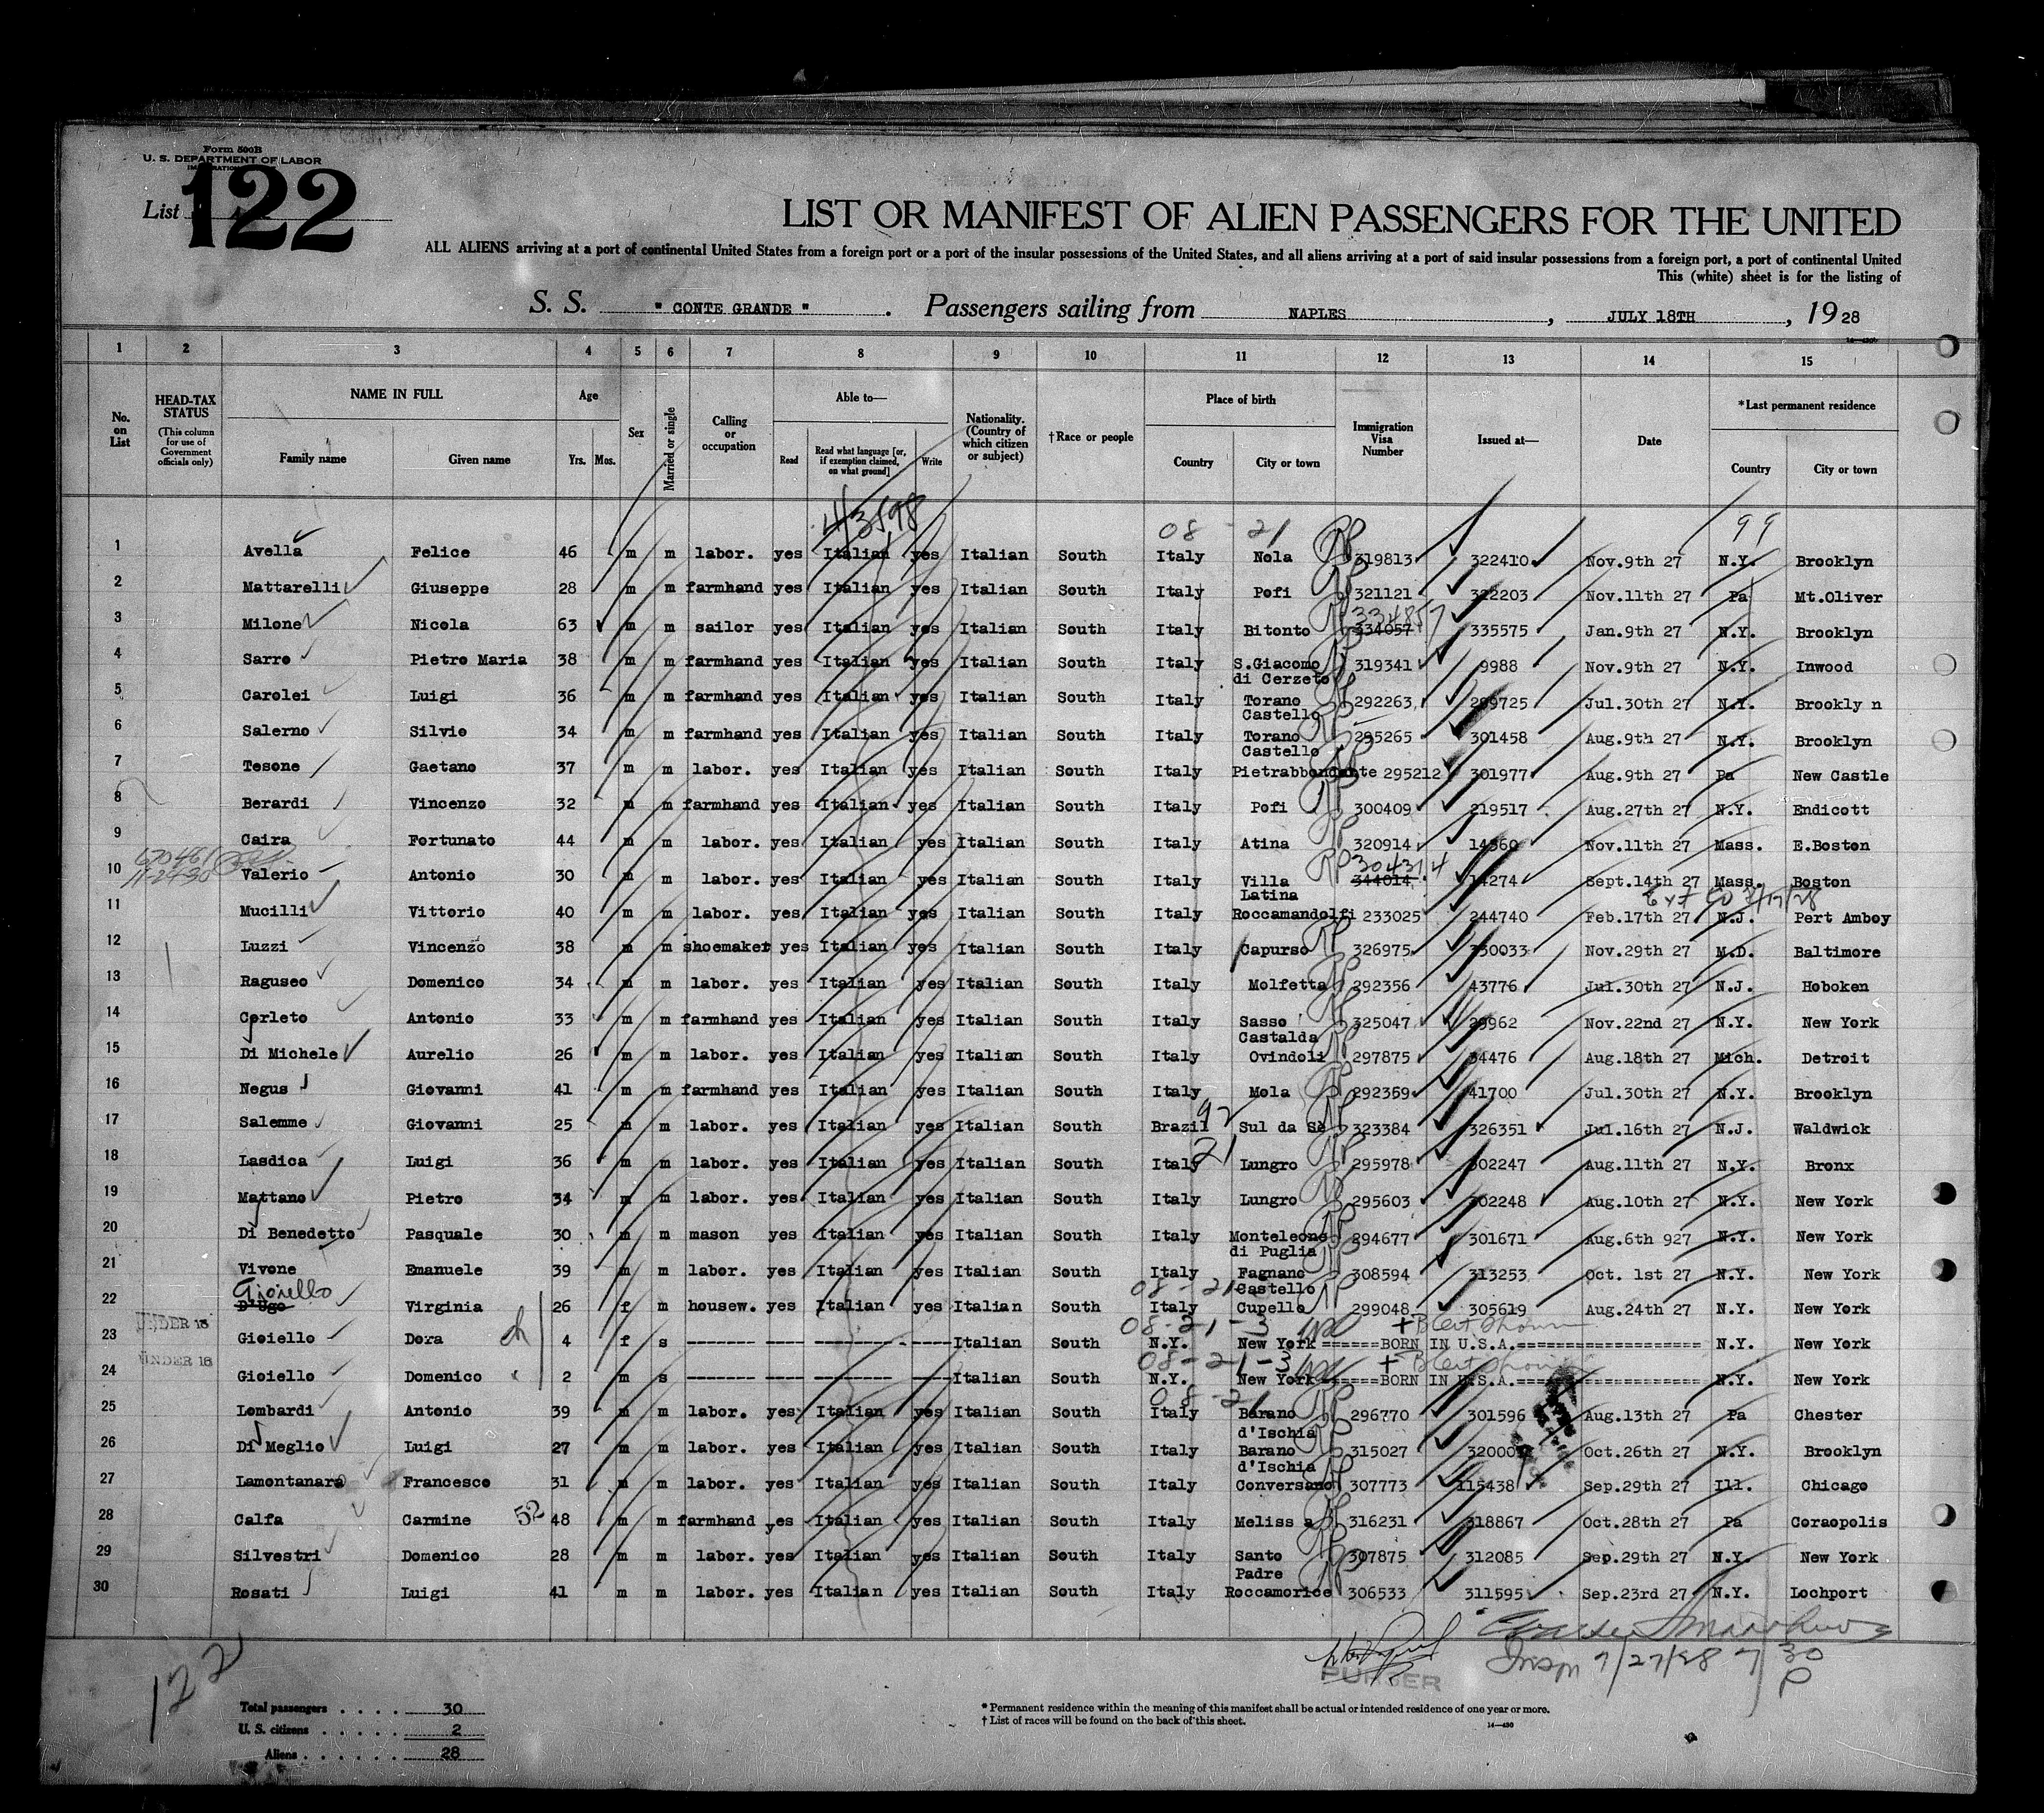 Form 500B
U. S. DEPARTMENT OF LABOR
List 122
LIST OR MANIFEST OF ALIEN PASSENGERS FOR THE UNITED
ALL ALIENS arriving at a port of continental United States from a foreign port or a port of the insular possessions of the United States, and all aliens arriving at a port of said insular possessions from a foreign port, a port of continental United
This (white) sheet is for the listing of
S. S. " CONTE GRANDE " . Passengers sailing from NAPLES , JULY 18TH , 19 28
1 2 3 4 5 6 7 8 9 10 11 12 13 14 15
No. on List
HEAD-TAX STATUS
(This column for use of Government officials only)
NAME IN FULL
Family name Given name
Age
Yrs. Mos.
Sex
Married or single
Calling or occupation
Able to—
Read Read what language [or, if exemption claimed, on what ground] Write
Nationality. (Country of which citizen or subject)
†Race or people
Place of birth
Country City or town
Immigration Visa Number
Issued at—
Date
*Last permanent residence
Country City or town
43598 08 - 21 99
1 Avella Felice 46 m m labor. yes Italian yes Italian South Italy Nola 319813 322410 Nov.9th 27 N.Y. Brooklyn
2 Mattarelli Giuseppe 28 m m farmhand yes Italian yes Italian South Italy Pofi 321121 322203 Nov.11th 27 Pa Mt.Oliver
334857
3 Milone Nicola 63 m m sailor yes Italian yes Italian South Italy Bitonto 334057 335575 Jan.9th 27 N.Y. Brooklyn
4 Sarro Pietro Maria 38 m m farmhand yes Italian yes Italian South Italy S.Giacomo di Cerzeto 319341 9988 Nov.9th 27 N.Y. Inwood
5 Carolei Luigi 36 m m farmhand yes Italian yes Italian South Italy Torano Castello 292263 299725 Jul.30th 27 N.Y. Brookly n
6 Salerno Silvio 34 m m farmhand yes Italian yes Italian South Italy Torano Castello 295265 301458 Aug.9th 27 N.Y. Brooklyn
7 Tesone Gaetano 37 m m labor. yes Italian yes Italian South Italy Pietrabbondante 295212 301977 Aug.9th 27 Pa New Castle
8 Berardi Vincenzo 32 m m farmhand yes Italian yes Italian South Italy Pofi 300409 219517 Aug.27th 27 N.Y. Endicott
9 Caira Fortunato 44 m m labor. yes Italian yes Italian South Italy Atina 320914 14360 Nov.11th 27 Mass. E.Boston
670461
11-24-30
304314
10 Valerio Antonio 30 m m labor. yes Italian yes Italian South Italy Villa Latina 344014 14274 Sept.14th 27 Mass. Boston
Ext to 7/17/28
11 Mucilli Vittorio 40 m m labor. yes Italian yes Italian South Italy Roccamandolfi 233025 244740 Feb.17th 27 N.J. Pert Amboy
12 Luzzi Vincenzo 38 m m shoemaker yes Italian yes Italian South Italy Capurso 326975 330033 Nov.29th 27 M.D. Baltimore
13 Raguseo Domenico 34 m m labor. yes Italian yes Italian South Italy Molfetta 292356 43776 Jul.30th 27 N.J. Hoboken
14 Corleto Antonio 33 m m farmhand yes Italian yes Italian South Italy Sasso Castalda 325047 29962 Nov.22nd 27 N.Y. New York
15 Di Michele Aurelio 26 m m labor. yes Italian yes Italian South Italy Ovindoli 297875 34476 Aug.18th 27 Mich. Detroit
16 Negus Giovanni 41 m m farmhand yes Italian yes Italian South Italy Mola 292359 41700 Jul.30th 27 N.Y. Brooklyn
92
17 Salemme Giovanni 25 m m labor. yes Italian yes Italian South Brazil Sul da Se 323384 326351 Jul.16th 27 N.J. Waldwick
21
18 Lasdica Luigi 36 m m labor. yes Italian yes Italian South Italy Lungro 295978 302247 Aug.11th 27 N.Y. Bronx
19 Mattano Pietro 34 m m labor. yes Italian yes Italian South Italy Lungro 295603 302248 Aug.10th 27 N.Y. New York
20 Di Benedetto Pasquale 30 m m mason yes Italian yes Italian South Italy Monteleone di Puglia 294677 301671 Aug.6th 927 N.Y. New York
21 Vivone Emanuele 39 m m labor. yes Italian yes Italian South Italy Fagnano Castello 308594 313253 Oct. 1st 27 N.Y. New York
Gioiello 08-21
22 D'Ugo Virginia 26 f m housew. yes Italian yes Italian South Italy Cupello 299048 305619 Aug.24th 27 N.Y. New York
UNDER 16 08-21-3 + B Cert Shown
23 Gioiello Dora 4 f s Italian South N.Y. New York ======BORN IN U.S.A.=================== N.Y. New York
UNDER 16 08-21-3 + B Cert Shown
24 Gioiello Domenico 2 m s Italian South N.Y. New York ======BORN IN U.S.A.=================== N.Y. New York
08-21
25 Lombardi Antonio 39 m m labor. yes Italian yes Italian South Italy Barano d'Ischia 296770 301596 Aug.13th 27 Pa Chester
26 Di Meglio Luigi 27 m m labor. yes Italian yes Italian South Italy Barano d'Ischia 315027 Oct.26th 27 N.Y. Brooklyn
27 Lamontanara Francesco 31 m m labor. yes Italian yes Italian South Italy Conversano 307773 115438 Sep.29th 27 Ill. Chicago
28 Calfa Carmine 52 48 m m farmhand yes Italian yes Italian South Italy Meliss a 316231 318867 Oct.28th 27 Pa Coraopolis
29 Silvestri Domenico 28 m m labor. yes Italian yes Italian South Italy Santo Padre 307875 312085 Sep.29th 27 N.Y. New York
30 Rosati Luigi 41 m m labor. yes Italian yes Italian South Italy Roccamorice 306533 311595 Sep.23rd 27 N.Y. Lochport
PURSER
Insp 7/27/28 7 30 P
122
Total passengers . . . . 30
U. S. citizens . . . . . 2
Aliens . . . . . . 28
* Permanent residence within the meaning of this manifest shall be actual or intended residence of one year or more.
† List of races will be found on the back of this sheet.
14—430